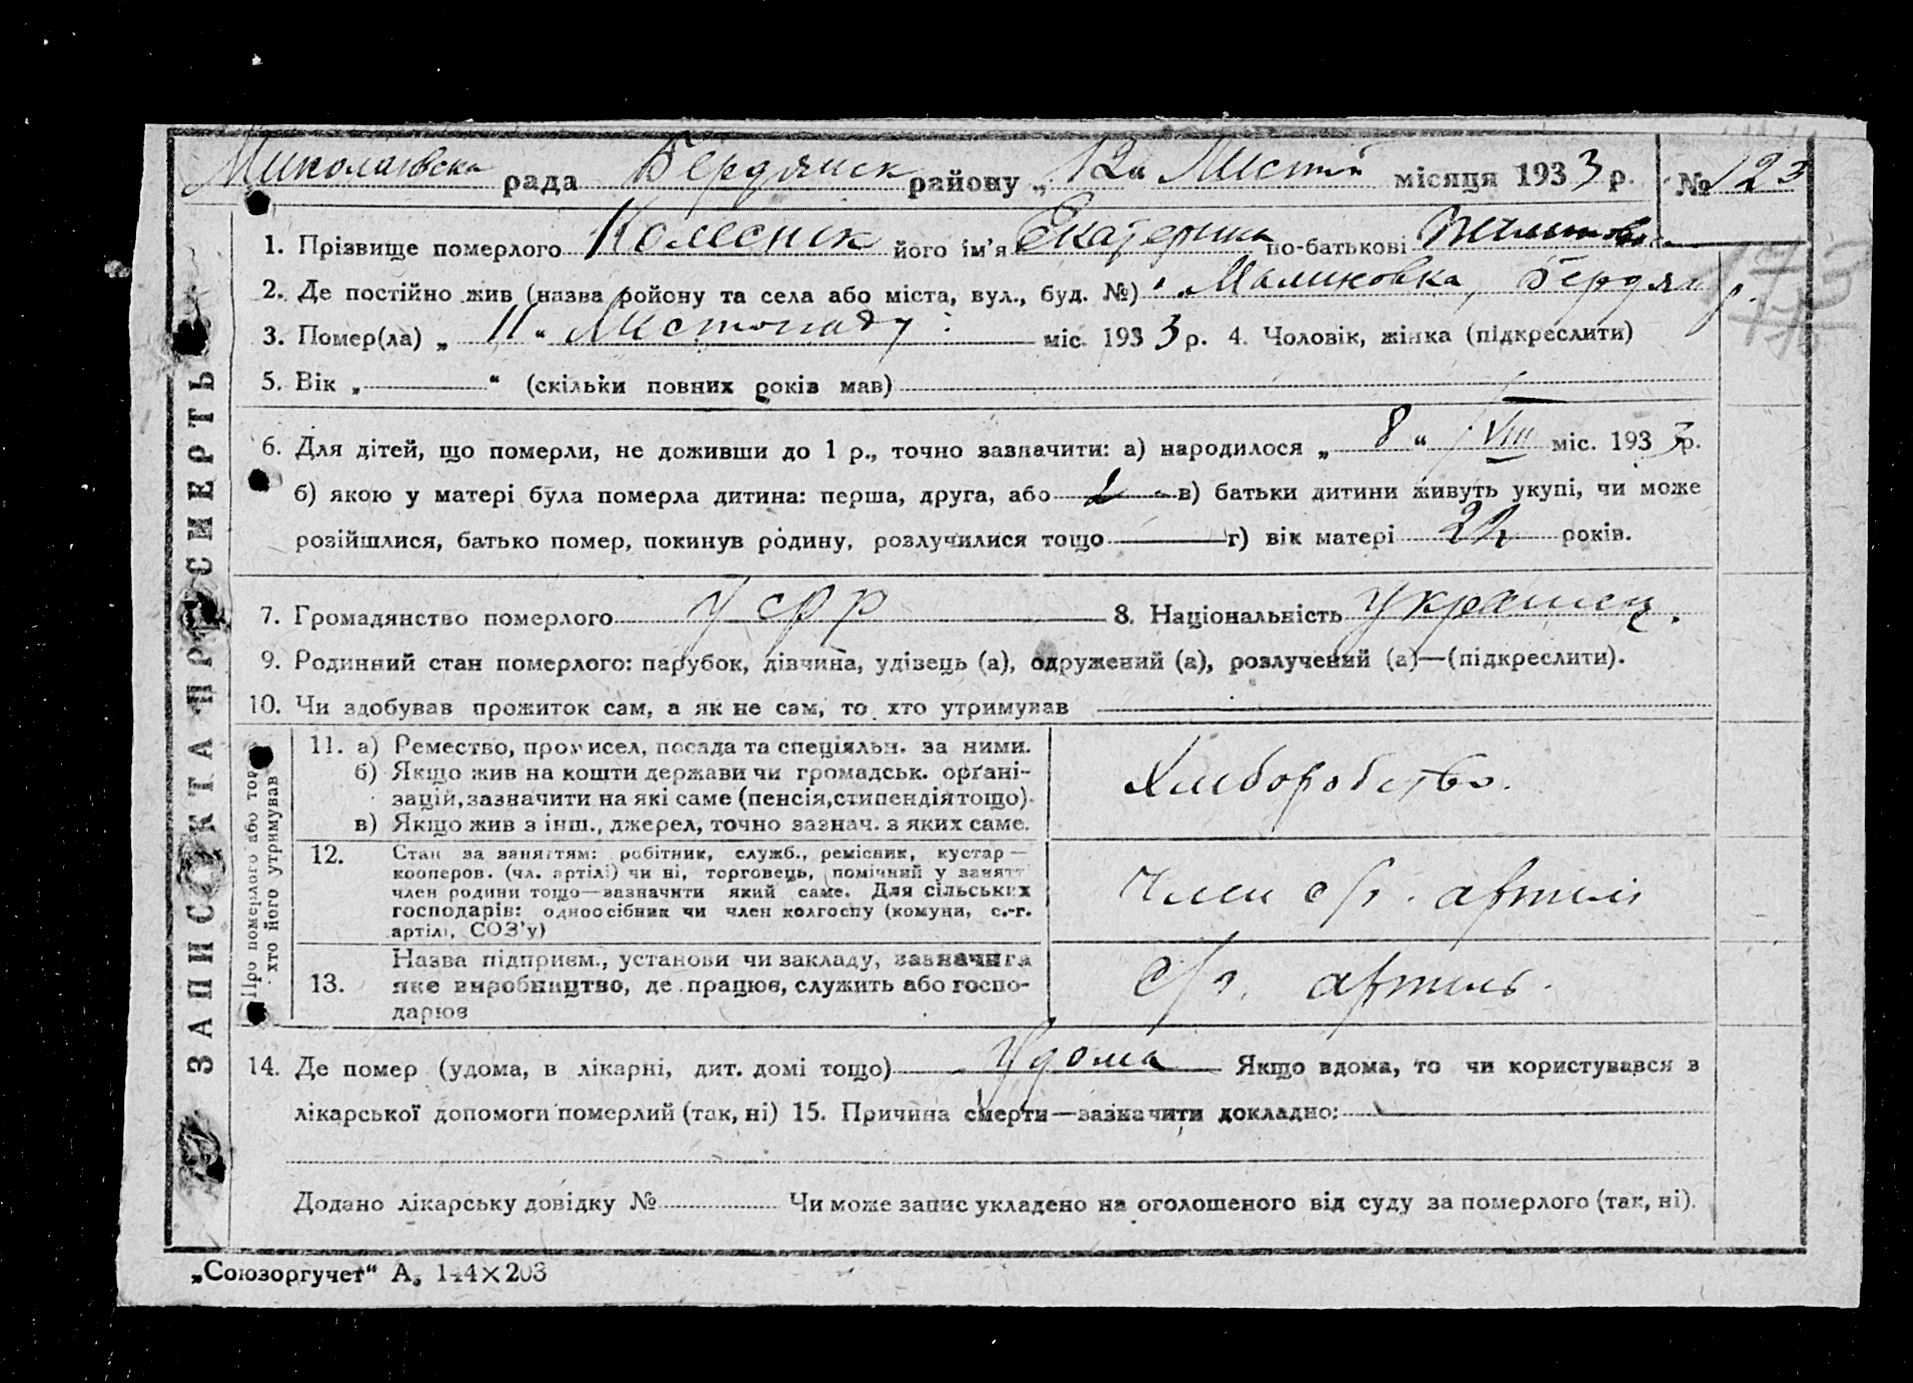 Миколаївська рада Бердянськ району „12" Листоп місяця 1933 р. № 123
1. Прізвище померлого Колєснік його ім'я Екатерина по-батькові
2. Де постійно жив (назва ройону та села або міста, вул., буд. №) Малиновка, Бердян р.
3. Помер(ла) „11" Листопаду міс. 1933 р. 4. Чоловік, жінка (підкреслити)
5. Вік „ " (скільки повних років мав)
6. Для дітей, що померли, не доживши до 1 р., точно зазначити: а) народилося „8" VIII міс. 1933 р.
б) якою у матері була померла дитина: перша, друга, або 2 в) батьки дитини живуть укупі, чи може
розійшлися, батько помер, покинув родину, розлучилися тощо г) вік матері років.
7. Громадянство померлого УСРР 8. Національність Українец.
9. Родинний стан померлого: парубок, дівчина, удівець (а), одружений (а), розлучений (а)—(підкреслити).
10. Чи здобував прожиток сам, а як не сам, то хто утримував
ЗАПИСКА ПРО СМЕРТЬ
Про померлого або того
хто його утримував
11. а) Ремество, промисел, посада та спеціяльн. за ними.
б) Якщо жив на кошти держави чи громадськ. орґані-
зацій, зазначити на які саме (пенсія, стипендія тощо).
в) Якщо жив з інш., джерел, точно зазнач. з яких саме.
Хлиборобство.
12. Стан за заняттям: робітник, служб., ремісник, кустар—
кооперов. (чл. артілі) чи ні, торговець, помічний у занятт
член родини тощо—зазначити який саме. Для сільських
господарів: одноосібник чи член колгоспу (комуни, с.-г.
артілі, СОЗ'у)
Член с/г. артилі
13. Назва підприєм., установи чи закладу, зазначити
яке виробництво, де працює, служить або госпо-
дарює
с/г. артиль.
14. Де помер (удома, в лікарні, дит. домі тощо) Удома Якщо вдома, то чи користувався з
лікарської допомоги померлий (так, ні) 15. Причина смерти—зазначити докладно:
Додано лікарську довідку № Чи може запис укладено на оголошеного від суду за померлого (так, ні).
„Союзоргучет" А₅ 144×203